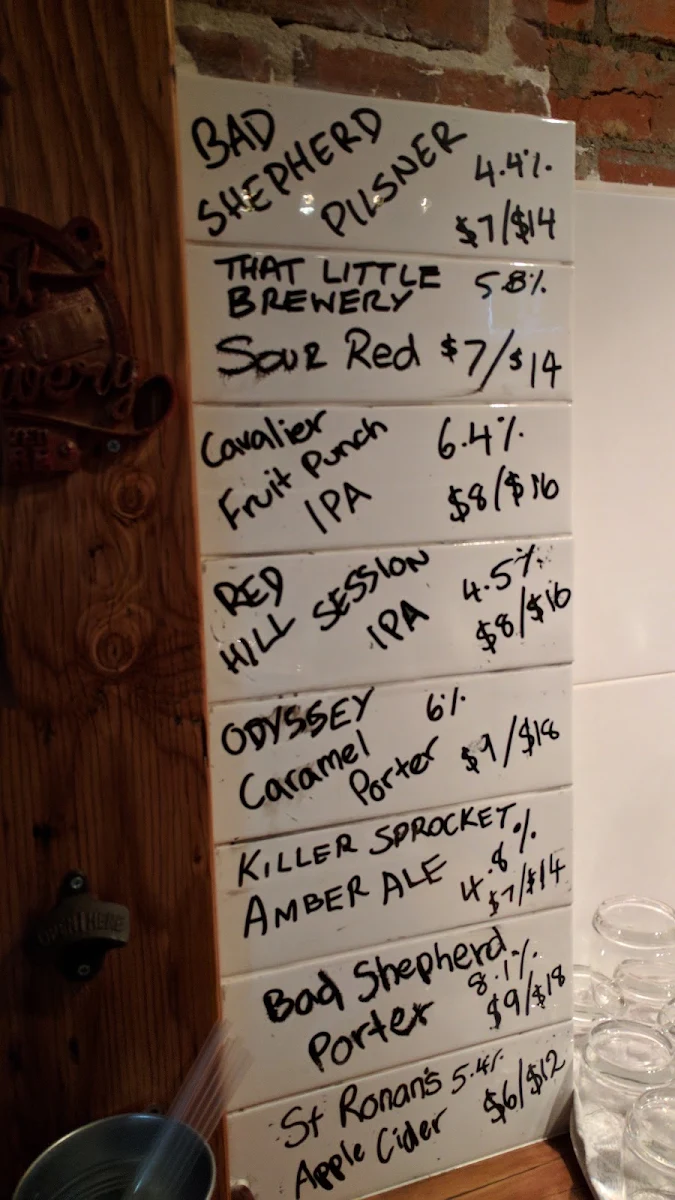 BAD
SHEPHERD
PILSNER
4.4%
$7/$14
THAT LITTLE
BREWERY
5.8%
Sour Red $7/$14
Cavalier
Fruit Punch
IPA
6.4%
$8/$16
RED
HILL SESSION
IPA
4.5%
$8/$16
ODYSSEY 6%
Caramel
Porter $9/$18
KILLER SPROCKET
AMBER ALE
4.8%
$7/$14
Bad Shepherd
Porter
8.1%
$9/$18
St Ronan's 5.4%
Apple Cider $6/$12
OPEN HERE